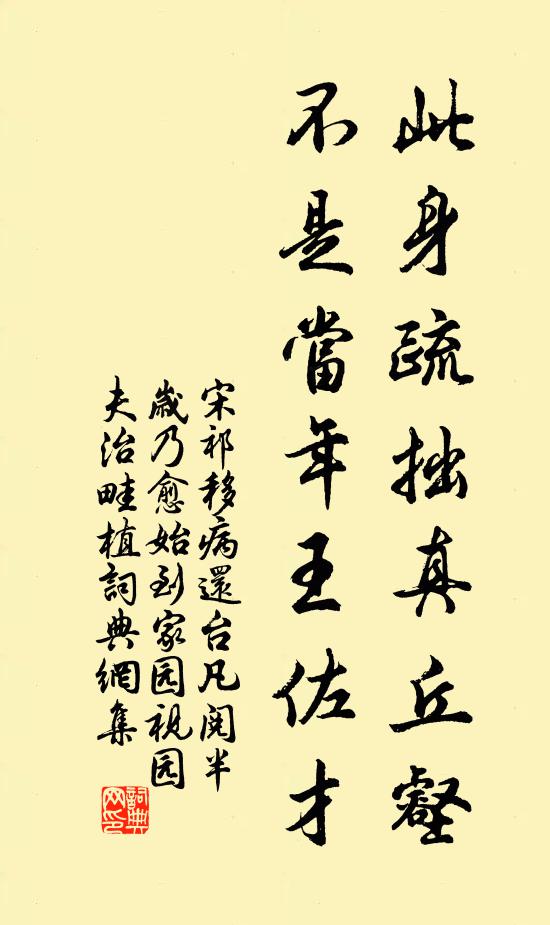 此身疏拙真丘壑
不是當年王佐才
宋祁移病還台凡閱半
歲乃愈始到家园視园
夫治畦植詞典網集
詞典網印